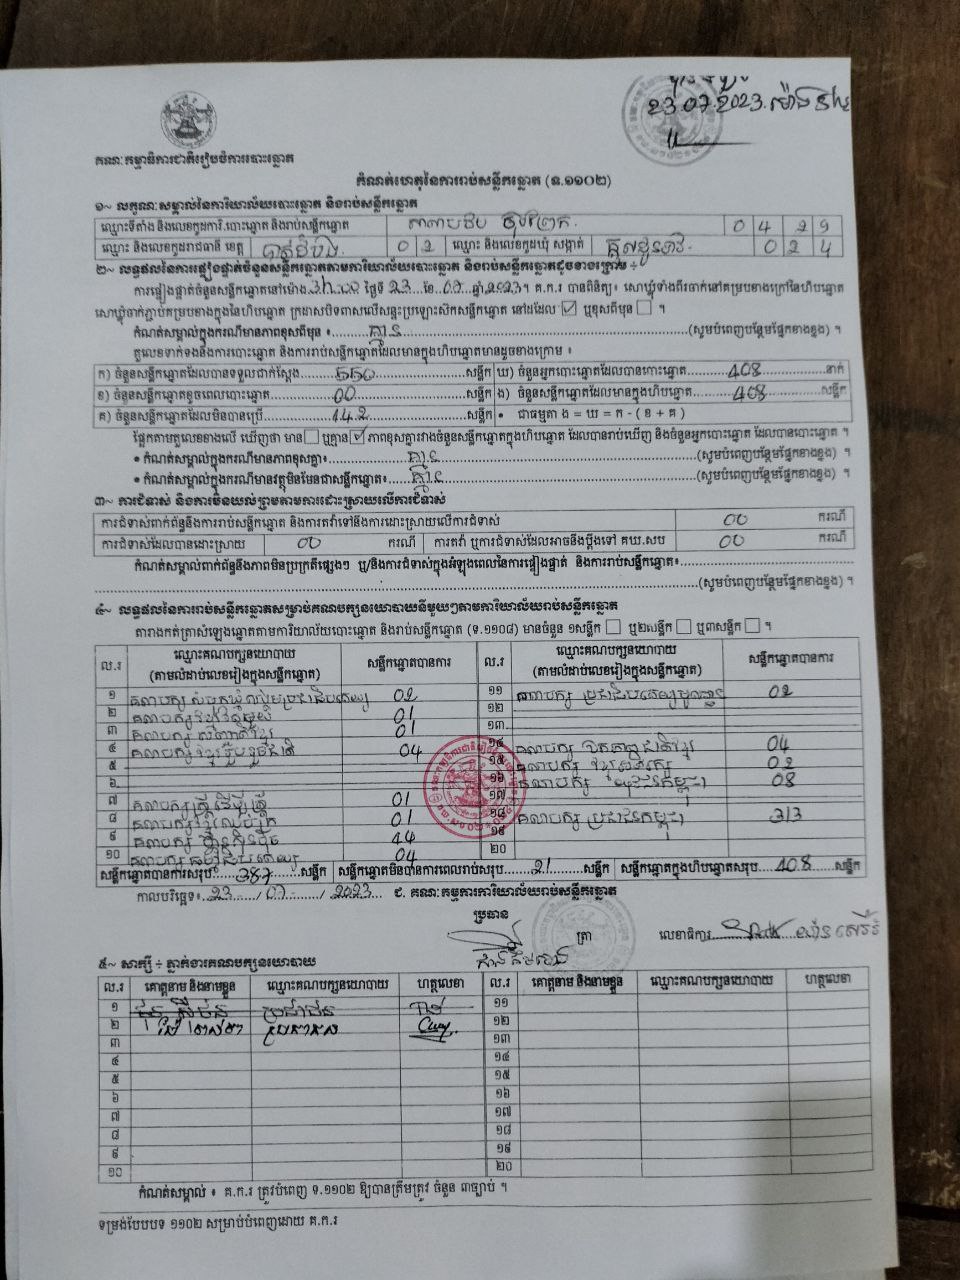 23.07.2023
គណៈកម្មាធិការជាតិរៀបចំការបោះឆ្នោត
កំណត់ហេតុនៃការរាប់សន្លឹកឆ្នោត (ទ.១១០២)
១~ លក្ខណៈសម្គាល់នៃការិយាល័យបោះឆ្នោត និងរាប់សន្លឹកឆ្នោត
ឈ្មោះទីតាំង និងលេខកូដការិ.បោះឆ្នោត និងរាប់សន្លឹកឆ្នោត 0 4 2 9
ឈ្មោះ និងលេខកូដរាជធានី ខេត្ត បាត់ដំបង 0 2 ឈ្មោះ និងលេខកូដឃុំ សង្កាត់ 0 2 4
២~ លទ្ធផលនៃការផ្ទៀងផ្ទាត់ចំនួនសន្លឹកឆ្នោតតាមការិយាល័យបោះឆ្នោត និងរាប់សន្លឹកឆ្នោតដូចខាងក្រោម ÷
ការផ្ទៀងផ្ទាត់ចំនួនសន្លឹកឆ្នោតនៅម៉ោង ថ្ងៃទី 23 ខែ 07 ឆ្នាំ 2023។ គ.ក.រ បានពិនិត្យ៖ សោឃ្លុំទាំងពីរចាក់នៅគម្របខាងក្រៅនៃហិបឆ្នោត
សោឃ្លុំចាក់ភ្ជាប់គម្របខាងក្នុងនៃហិបឆ្នោត ក្រដាសបិទពាសលើសន្ទះប្រឡោះស៊កសន្លឹកឆ្នោត នៅដដែល ☑ ឬខុសពីមុន ☐ ។
កំណត់សម្គាល់ក្នុងករណីមានភាពខុសពីមុន ៖ គ្មាន (សូមបំពេញបន្ថែមផ្នែកខាងខ្នង) ។
តួលេខទាក់ទងនឹងការបោះឆ្នោត និងការរាប់សន្លឹកឆ្នោតដែលមានក្នុងហិបឆ្នោតមានដូចខាងក្រោម ៖
ក) ចំនួនសន្លឹកឆ្នោតដែលបានទទួលជាក់ស្តែង 550 សន្លឹក ឃ) ចំនួនអ្នកបោះឆ្នោតដែលបានបោះឆ្នោត 408 នាក់
ខ) ចំនួនសន្លឹកឆ្នោតខូចពេលបោះឆ្នោត 00 សន្លឹក ង) ចំនួនសន្លឹកឆ្នោតដែលមានក្នុងហិបឆ្នោត 408 សន្លឹក
គ) ចំនួនសន្លឹកឆ្នោតដែលមិនបានប្រើ 142 សន្លឹក • ជាធម្មតា ង = ឃ = ក - ( ខ + គ )
ផ្អែកតាមតួលេខខាងលើ ឃើញថា មាន ☐ ឬគ្មាន ☑ ភាពខុសគ្នារវាងចំនួនសន្លឹកឆ្នោតក្នុងហិបឆ្នោត ដែលបានរាប់ឃើញ និងចំនួនអ្នកបោះឆ្នោត ដែលបានបោះឆ្នោត ។
• កំណត់សម្គាល់ក្នុងករណីមានភាពខុសគ្នា៖ គ្មាន (សូមបំពេញបន្ថែមផ្នែកខាងខ្នង) ។
• កំណត់សម្គាល់ក្នុងករណីមានវត្ថុមិនមែនជាសន្លឹកឆ្នោត៖ គ្មាន (សូមបំពេញបន្ថែមផ្នែកខាងខ្នង) ។
៣~ ការជំទាស់ និងការមិនយល់ព្រមតាមការដោះស្រាយលើការជំទាស់
ការជំទាស់ពាក់ព័ន្ធនឹងការរាប់សន្លឹកឆ្នោត និងការតវ៉ាទៅនឹងការដោះស្រាយលើការជំទាស់ 00 ករណី
ការជំទាស់ដែលបានដោះស្រាយ 00 ករណី ការតវ៉ា ឬការជំទាស់ដែលអាចនឹងប្តឹងទៅ គឃ.សប 00 ករណី
កំណត់សម្គាល់ពាក់ព័ន្ធនឹងភាពមិនប្រក្រតីផ្សេងៗ ឬ/និងការជំទាស់ក្នុងអំឡុងពេលនៃការផ្ទៀងផ្ទាត់ និងការរាប់សន្លឹកឆ្នោត៖
(សូមបំពេញបន្ថែមផ្នែកខាងខ្នង) ។
៤~ លទ្ធផលនៃការរាប់សន្លឹកឆ្នោតសម្រាប់គណបក្សនយោបាយនីមួយៗតាមការិយាល័យរាប់សន្លឹកឆ្នោត
តារាងកត់ត្រាសំឡេងឆ្នោតតាមការិយាល័យបោះឆ្នោត និងរាប់សន្លឹកឆ្នោត (ទ.១១០៨) មានចំនួន ១សន្លឹក ☐ ឬ២សន្លឹក ☐ ឬ៣សន្លឹក ☐ ។
ល.រ ឈ្មោះគណបក្សនយោបាយ (តាមលំដាប់លេខរៀងក្នុងសន្លឹកឆ្នោត) សន្លឹកឆ្នោតបានការ ល.រ ឈ្មោះគណបក្សនយោបាយ (តាមលំដាប់លេខរៀងក្នុងសន្លឹកឆ្នោត) សន្លឹកឆ្នោតបានការ
១ គណបក្ស សំបុកឃ្មុំសង្គមប្រជាធិបតេយ្យ 02 ១១ គណបក្ស ប្រជាធិបតេយ្យមូលដ្ឋាន 02
២ គណបក្ស 01 ១២
៣ គណបក្ស 01 ១៣
៤ គណបក្ស ខ្មែររួបរួមជាតិ 04 ១៤ គណបក្ស ឯកភាពជាតិខ្មែរ 04
៥ ១៥ គណបក្ស 02
៦ ១៦ គណបក្ស 08
៧ គណបក្សស្ត្រីដើម្បីស្ត្រី 01 ១៧
៨ គណបក្ស 01 ១៨ គណបក្ស ប្រជាជនកម្ពុជា 313
៩ គណបក្ស ហ្វ៊ុនស៊ិនប៉ិច 44 ១៩
១០ គណបក្ស ធម្មាធិបតេយ្យ 04 ២០
សន្លឹកឆ្នោតបានការសរុប 387 សន្លឹក សន្លឹកឆ្នោតមិនបានការពេលរាប់សរុប 21 សន្លឹក សន្លឹកឆ្នោតក្នុងហិបឆ្នោតសរុប 408 សន្លឹក
កាលបរិច្ឆេទ៖ 23 / 07 / 2023 ជ. គណៈកម្មការការិយាល័យរាប់សន្លឹកឆ្នោត
ប្រធាន
ត្រា
លេខាធិការ
៥~ សាក្សី ÷ ភ្នាក់ងារគណបក្សនយោបាយ
ល.រ គោត្តនាម និងនាមខ្លួន ឈ្មោះគណបក្សនយោបាយ ហត្ថលេខា ល.រ គោត្តនាម និងនាមខ្លួន ឈ្មោះគណបក្សនយោបាយ ហត្ថលេខា
១ ប្រជាជន ១១
២ ១២
៣ ១៣
៤ ១៤
៥ ១៥
៦ ១៦
៧ ១៧
៨ ១៨
៩ ១៩
១០ ២០
កំណត់សម្គាល់ ៖ គ.ក.រ ត្រូវបំពេញ ទ.១១០២ ឱ្យបានត្រឹមត្រូវ ចំនួន ៣ច្បាប់ ។
ទម្រង់បែបបទ ១១០២ សម្រាប់បំពេញដោយ គ.ក.រ